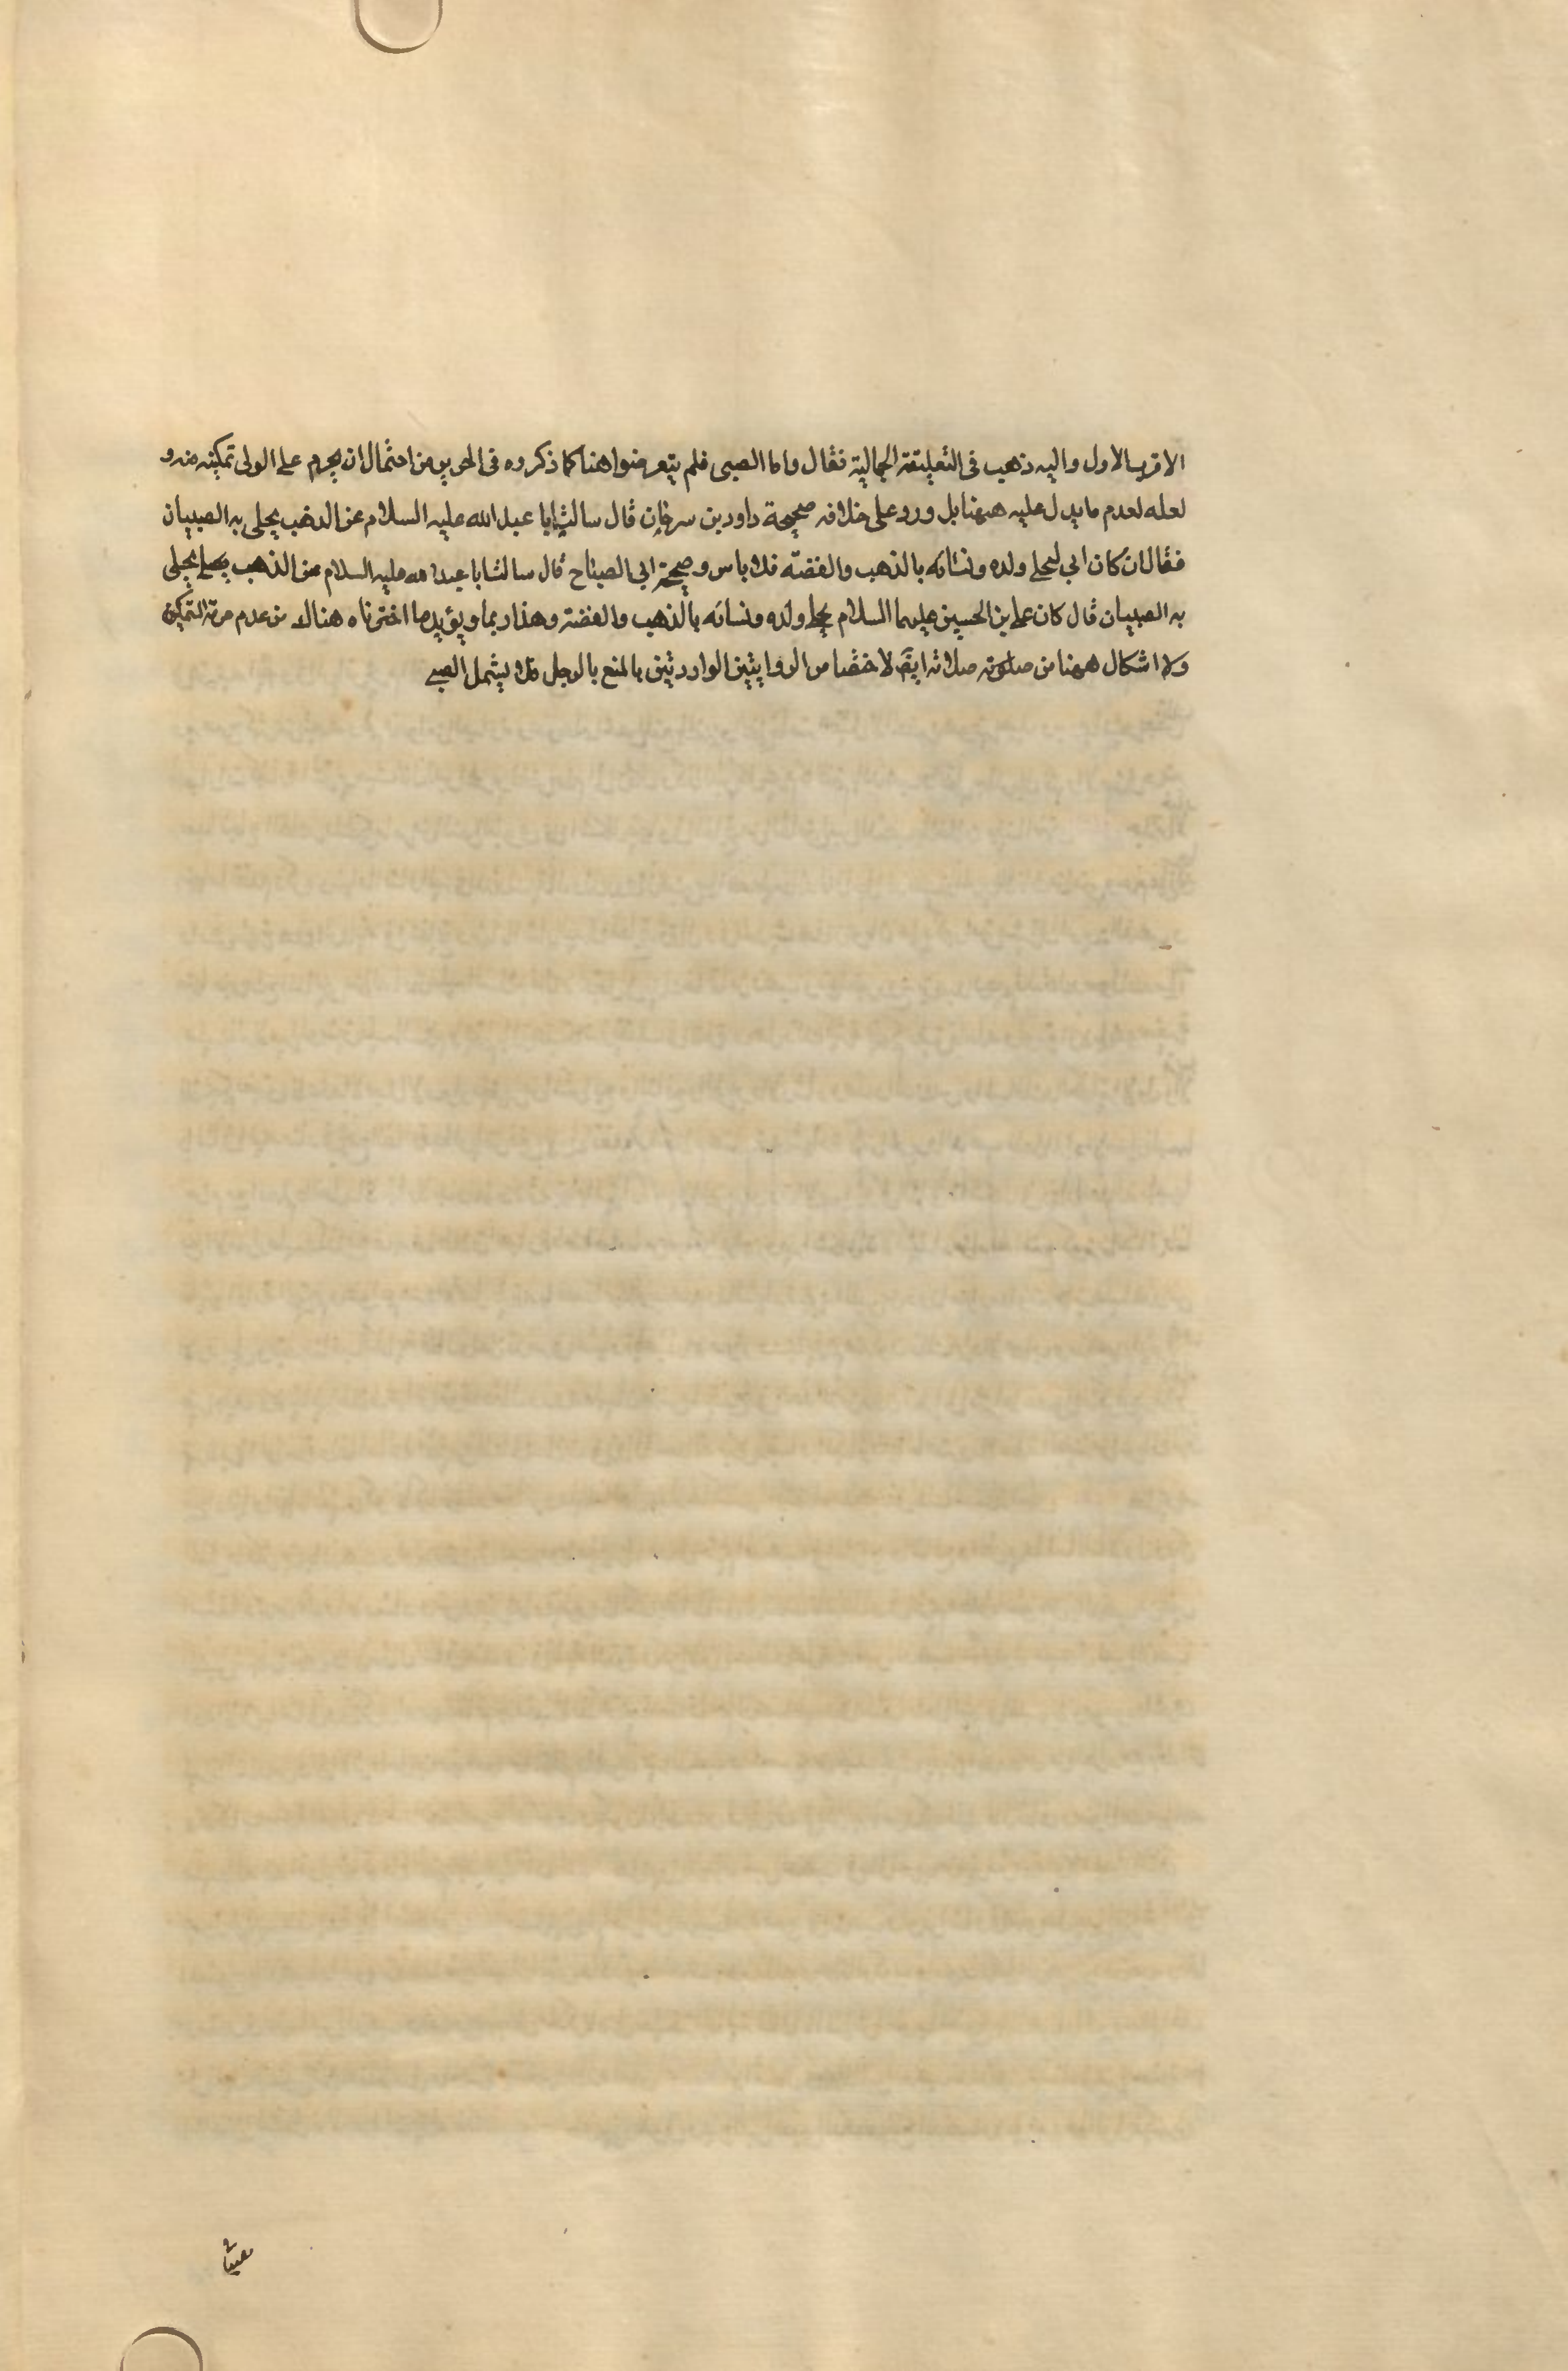 الاقرب الاول واليه ذهب فى التعليقة الجمالية فقال واما الصبى فلم يتعرضوا هنا كما ذكروه فى الحرير من احتمال ان يحرم على الولى تمكينه منه و
لعله لعدم ما يدل عليه ههنا بل ورود على خلافه صحيحة داود بن سرحان قال سالت ابا عبد الله عليه السلام عن الذهب يحلى به الصبيان
فقال ان كان ابي ليحلى ولده ونسائه بالذهب والفضة فلا باس وصحيحة ابى الصباح قال سالت ابا عبد الله عليه السلام عن الذهب يحلى
به الصبيان قال كان على بن الحسين عليهما السلام يحلى ولده ونسائه بالذهب والفضة وهذا ربما ويؤيد ما اخترناه هنالك من عدم حرمة التمكين
ولا اشكال ههنا من صلوته ايضا لاختصاص الروايتين الواردتين بالمنع بالرجل فلا يشمل الصبى